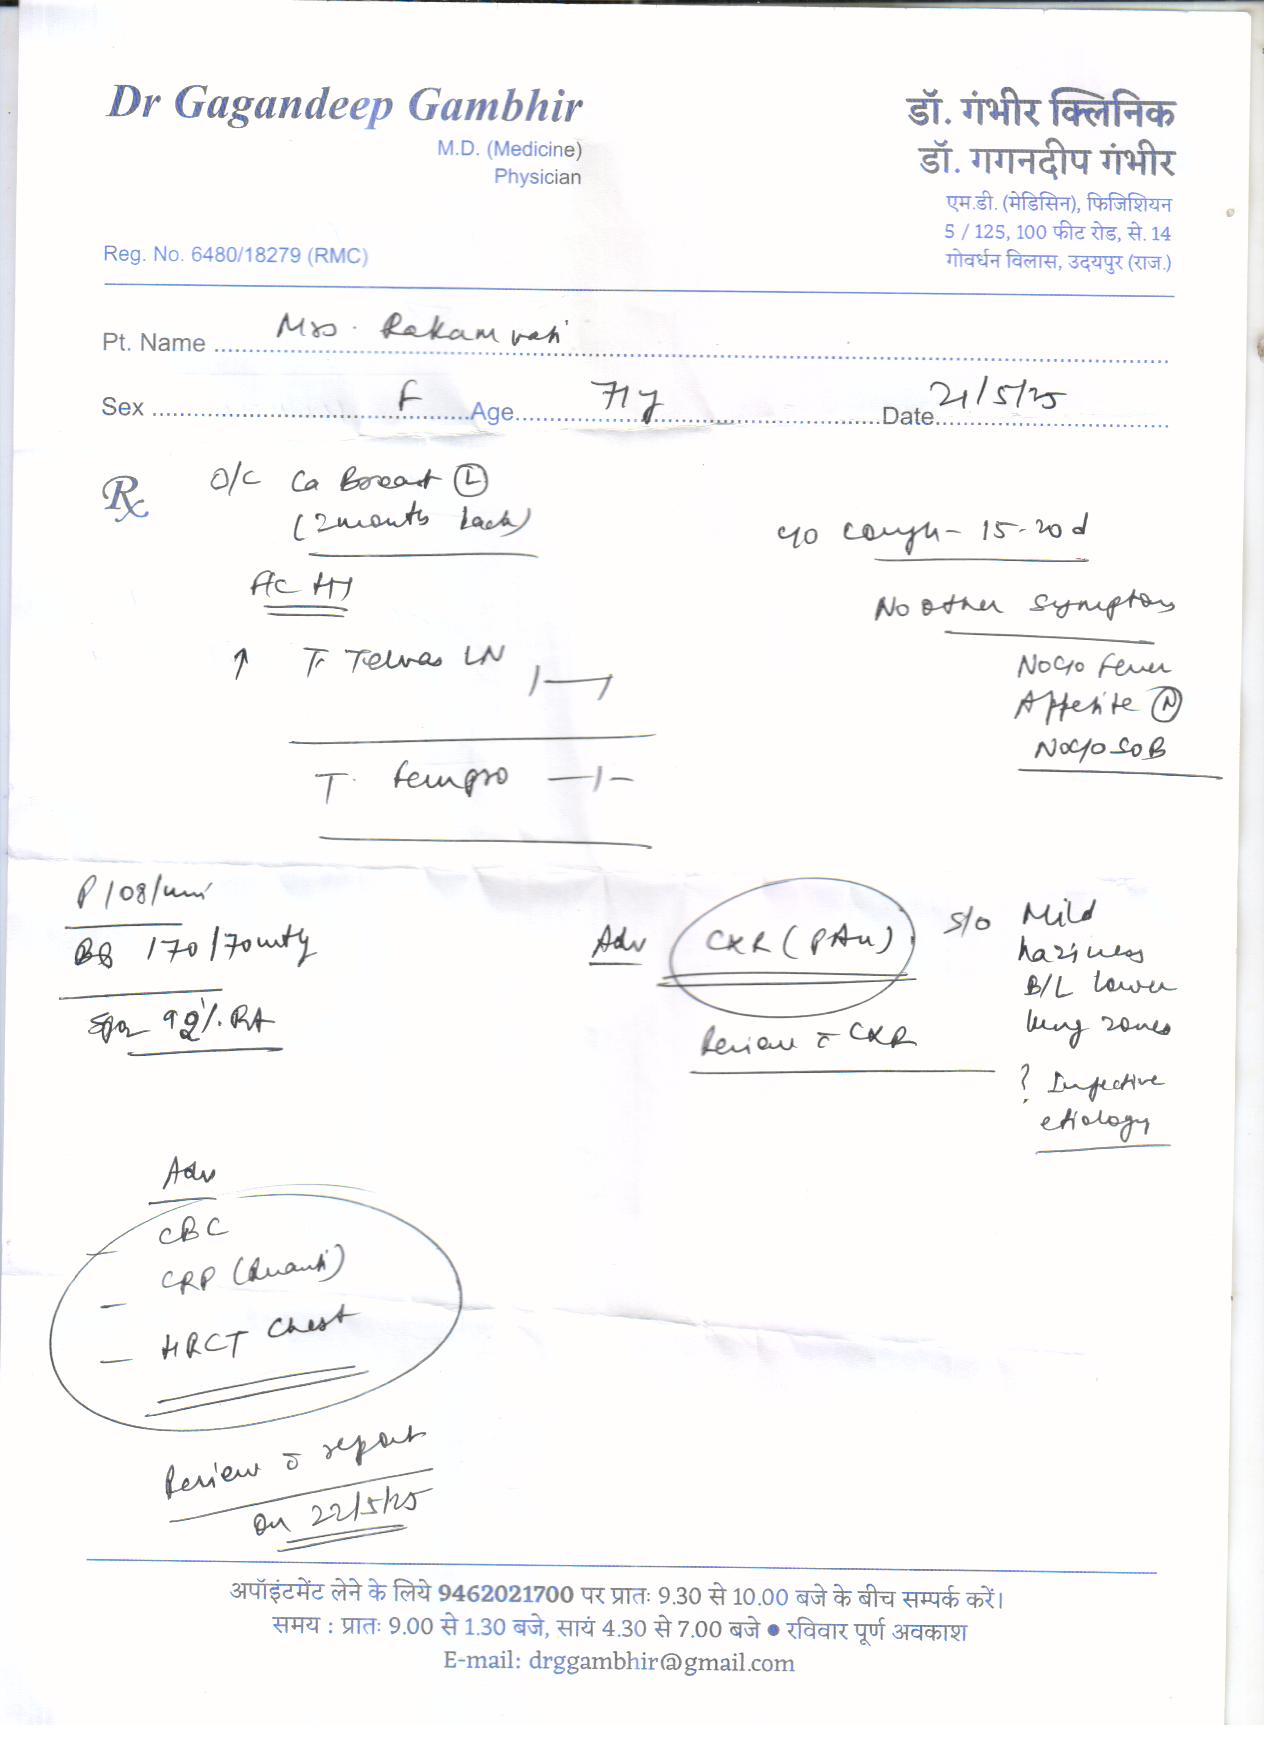 Dr Gagandeep Gambhir
M.D. (Medicine)
Physician
Reg. No. 6480/18279 (RMC)
डॉ. गंभीर क्लिनिक
डॉ. गगनदीप गंभीर
एम.डी. (मेडिसिन), फिजिशियन
5 / 125, 100 फीट रोड, से. 14
गोवर्धन विलास, उदयपुर (राज.)
Pt. Name Mrs. Rakamvati
Sex F Age 71 y Date 21/5/25
Rx
O/C Ca Breast (L)
(2 months back)
c/o cough - 15-20 d
No other symptoms
No c/o fever
Appetite (N)
No c/o SOB
↑ T. Telvas LN
T.
P 108/min
170/70 mmHg
92% RA
Adv CXR (PA)
Review c̄ CXR
S/o Mild
haziness
B/L lower
lung zones
? Infective
etiology
Adv
- CBC
- CRP (Quanti)
- HRCT Chest
Review c̄ report
on 22/5/25
अपॉइंटमेंट लेने के लिये 9462021700 पर प्रातः 9.30 से 10.00 बजे के बीच सम्पर्क करें।
समय : प्रातः 9.00 से 1.30 बजे, सायं 4.30 से 7.00 बजे ● रविवार पूर्ण अवकाश
E-mail: drggambhir@gmail.com